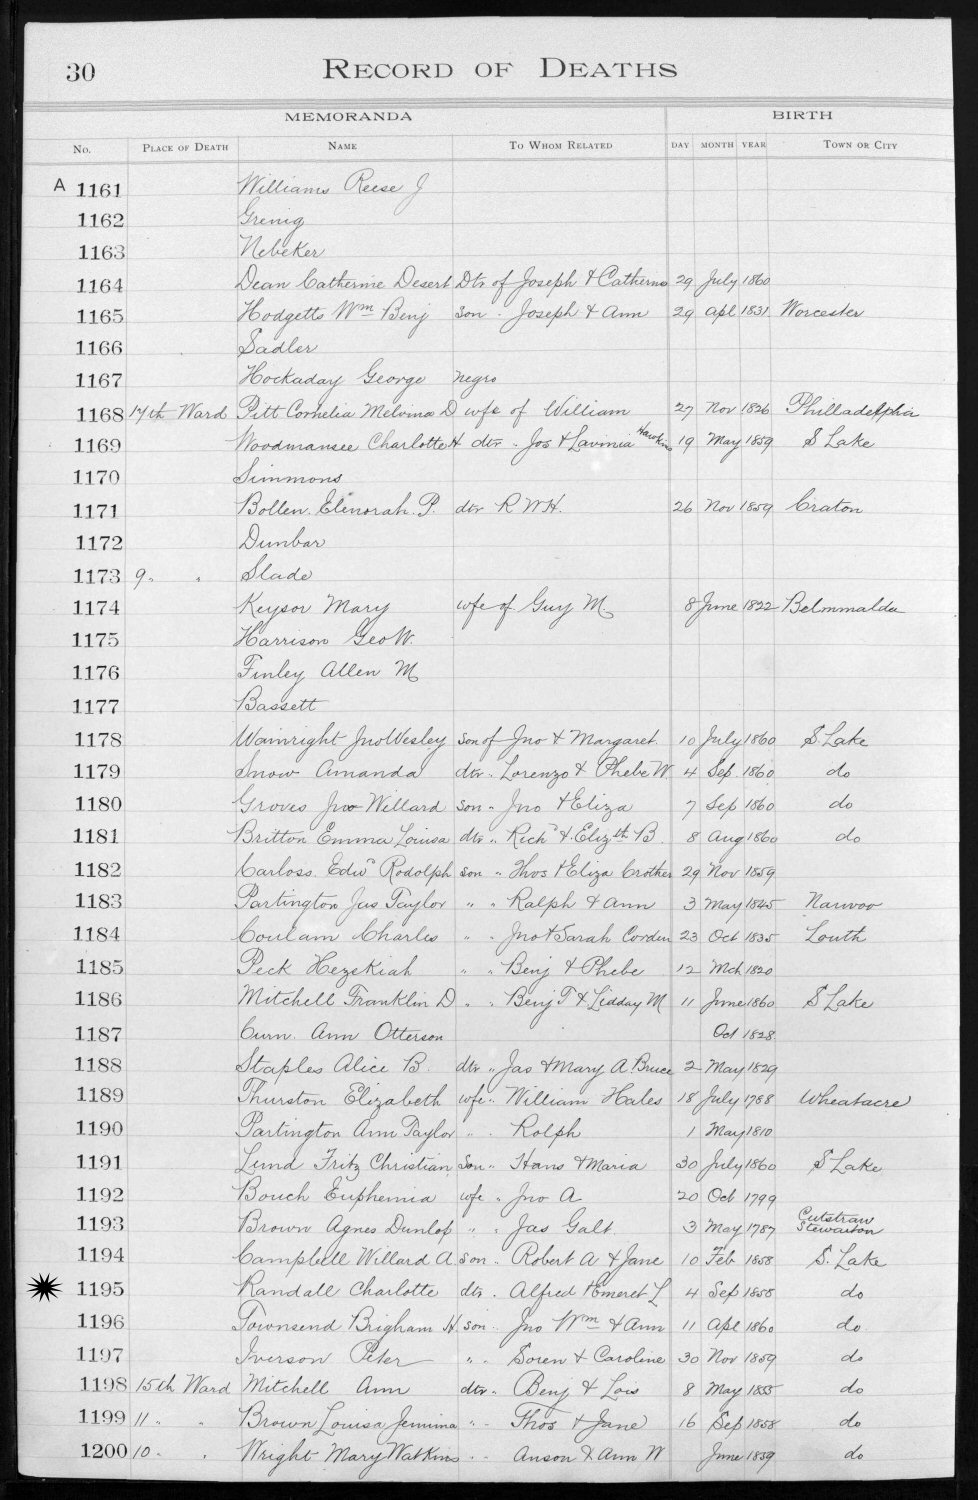 30 RECORD OF DEATHS
MEMORANDA BIRTH
No. PLACE OF DEATH NAME TO WHOM RELATED DAY MONTH YEAR TOWN OR CITY
A 1161 Williams Reese J
1162 Grenig
1163 Nebeker
1164 Dean Catherine Desert Dtr of Joseph & Catherine 29 July 1860
1165 Hodgetts Wm Benj son " Joseph & Ann 29 Apl 1831 Worcester
1166 Sadler
1167 Hockaday George negro
1168 17th Ward Pitt Cornelia Melvina D wife of William 27 Nov 1826 Philladelphia
1169 Woodmansee Charlotte H dtr " Jos & Lavinia Hawkins 19 May 1859 S Lake
1170 Simmons
1171 Bollen. Elenorah. P. dtr R W H. 26 Nov 1859 Craton
1172 Dunbar
1173 9 " " Slade
1174 Keysor Mary wfe of Guy M 8 June 1822 Belmmalda
1175 Harrison Geo W.
1176 Finley Allen M
1177 Bassett
1178 Wainright Jno Wesley son of Jno & Margaret. 10 July 1860 S Lake
1179 Snow Amanda dtr " Lorenzo & Phebe W 4 Sep. 1860 do
1180 Groves Jno Willard son " Jno & Eliza 7 Sep 1860 do
1181 Britton Emma Louisa dtr " Richd & Elizth B. 8 Aug 1860 do
1182 Carloss. Edwd Rodolph son " Thos & Eliza Crother 29 Nov 1859
1183 Partington Jas Taylor " " Ralph & Ann 3 May 1845 Nauvoo
1184 Coulam Charles " " Jno & Sarah Corden 23 Oct 1835 Louth
1185 Peck Hezekiah " " Benj & Phebe 12 Mch 1820
1186 Mitchell Franklin D " " Benj T & Lidday M 11 June 1860 S Lake
1187 Curn. Ann Otterson Oct 1828
1188 Staples Alice B. dtr " Jas & Mary A. Bruce 2 May 1829
1189 Thurston Elizabeth wfe " William Hales 18 July 1788 Wheatacre
1190 Partington Ann Taylor " " Rolph 1 May 1810
1191 Lund Fritz Christian Son " Hans & Maria 30 July 1860 S Lake
1192 Bouch Euphemia wfe " Jno A 20 Oct 1799
1193 Brown Agnes Dunlop " " Jas Galt. 3 May 1787 Cutstraw Stewarton
1194 Campbell Willard A. son " Robert A & Jane 10 Feb 1858 S. Lake
1195 Randall Charlotte dtr " Alfred & Emeret L 4 Sep 1858 do
1196 Townsend Brigham H. son " Jno Wm & Ann 11 Apl 1860 do
1197 Iverson Peter " " Soren & Caroline 30 Nov 1859 do
1198 15th Ward Mitchell Ann dtr " Benj & Lois 8 May 1855 do
1199 11 " " Brown Louisa Jemima " " Thos & Jane 16 Sep 1858 do
1200 10 " " Wright Mary Watkins " " Anson & Ann W June 1859 do